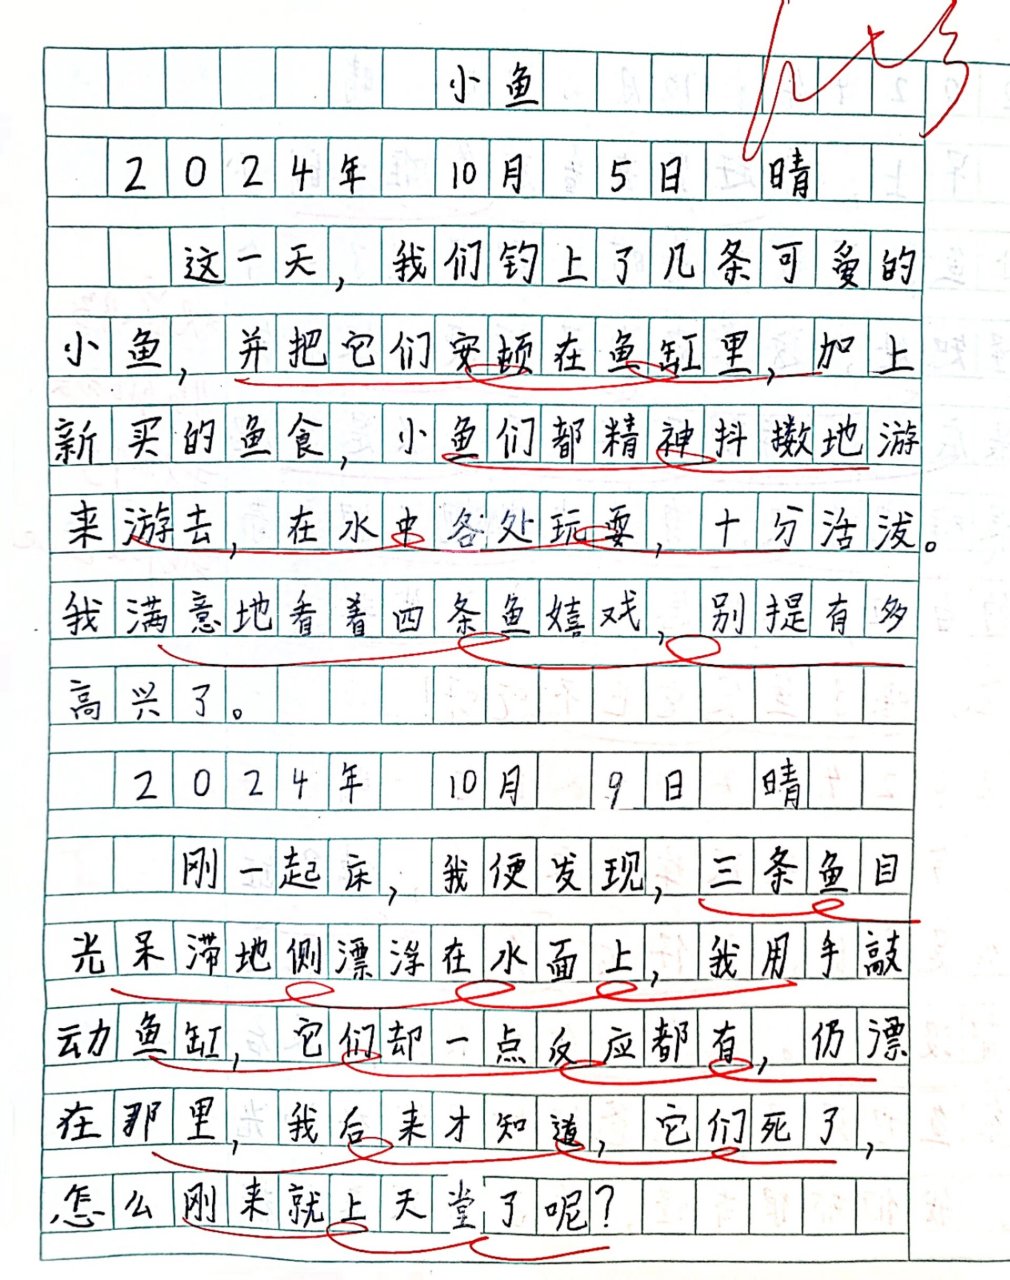 小鱼
2024年 10月 5日 晴
这一天，我们钓上了几条可爱的
小鱼，并把它们安顿在鱼缸里，加上
新买的鱼食，小鱼们都精神抖擞地游
来游去，在水中各处玩耍，十分活泼。
我满意地看着四条鱼嬉戏，别提有多
高兴了。
2024年 10月 9日 晴
刚一起床，我便发现，三条鱼目
光呆滞地侧漂浮在水面上，我用手敲
动鱼缸，它们却一点反应都有，仍漂
在那里，我后来才知道，它们死了，
怎么刚来就上天堂了呢？